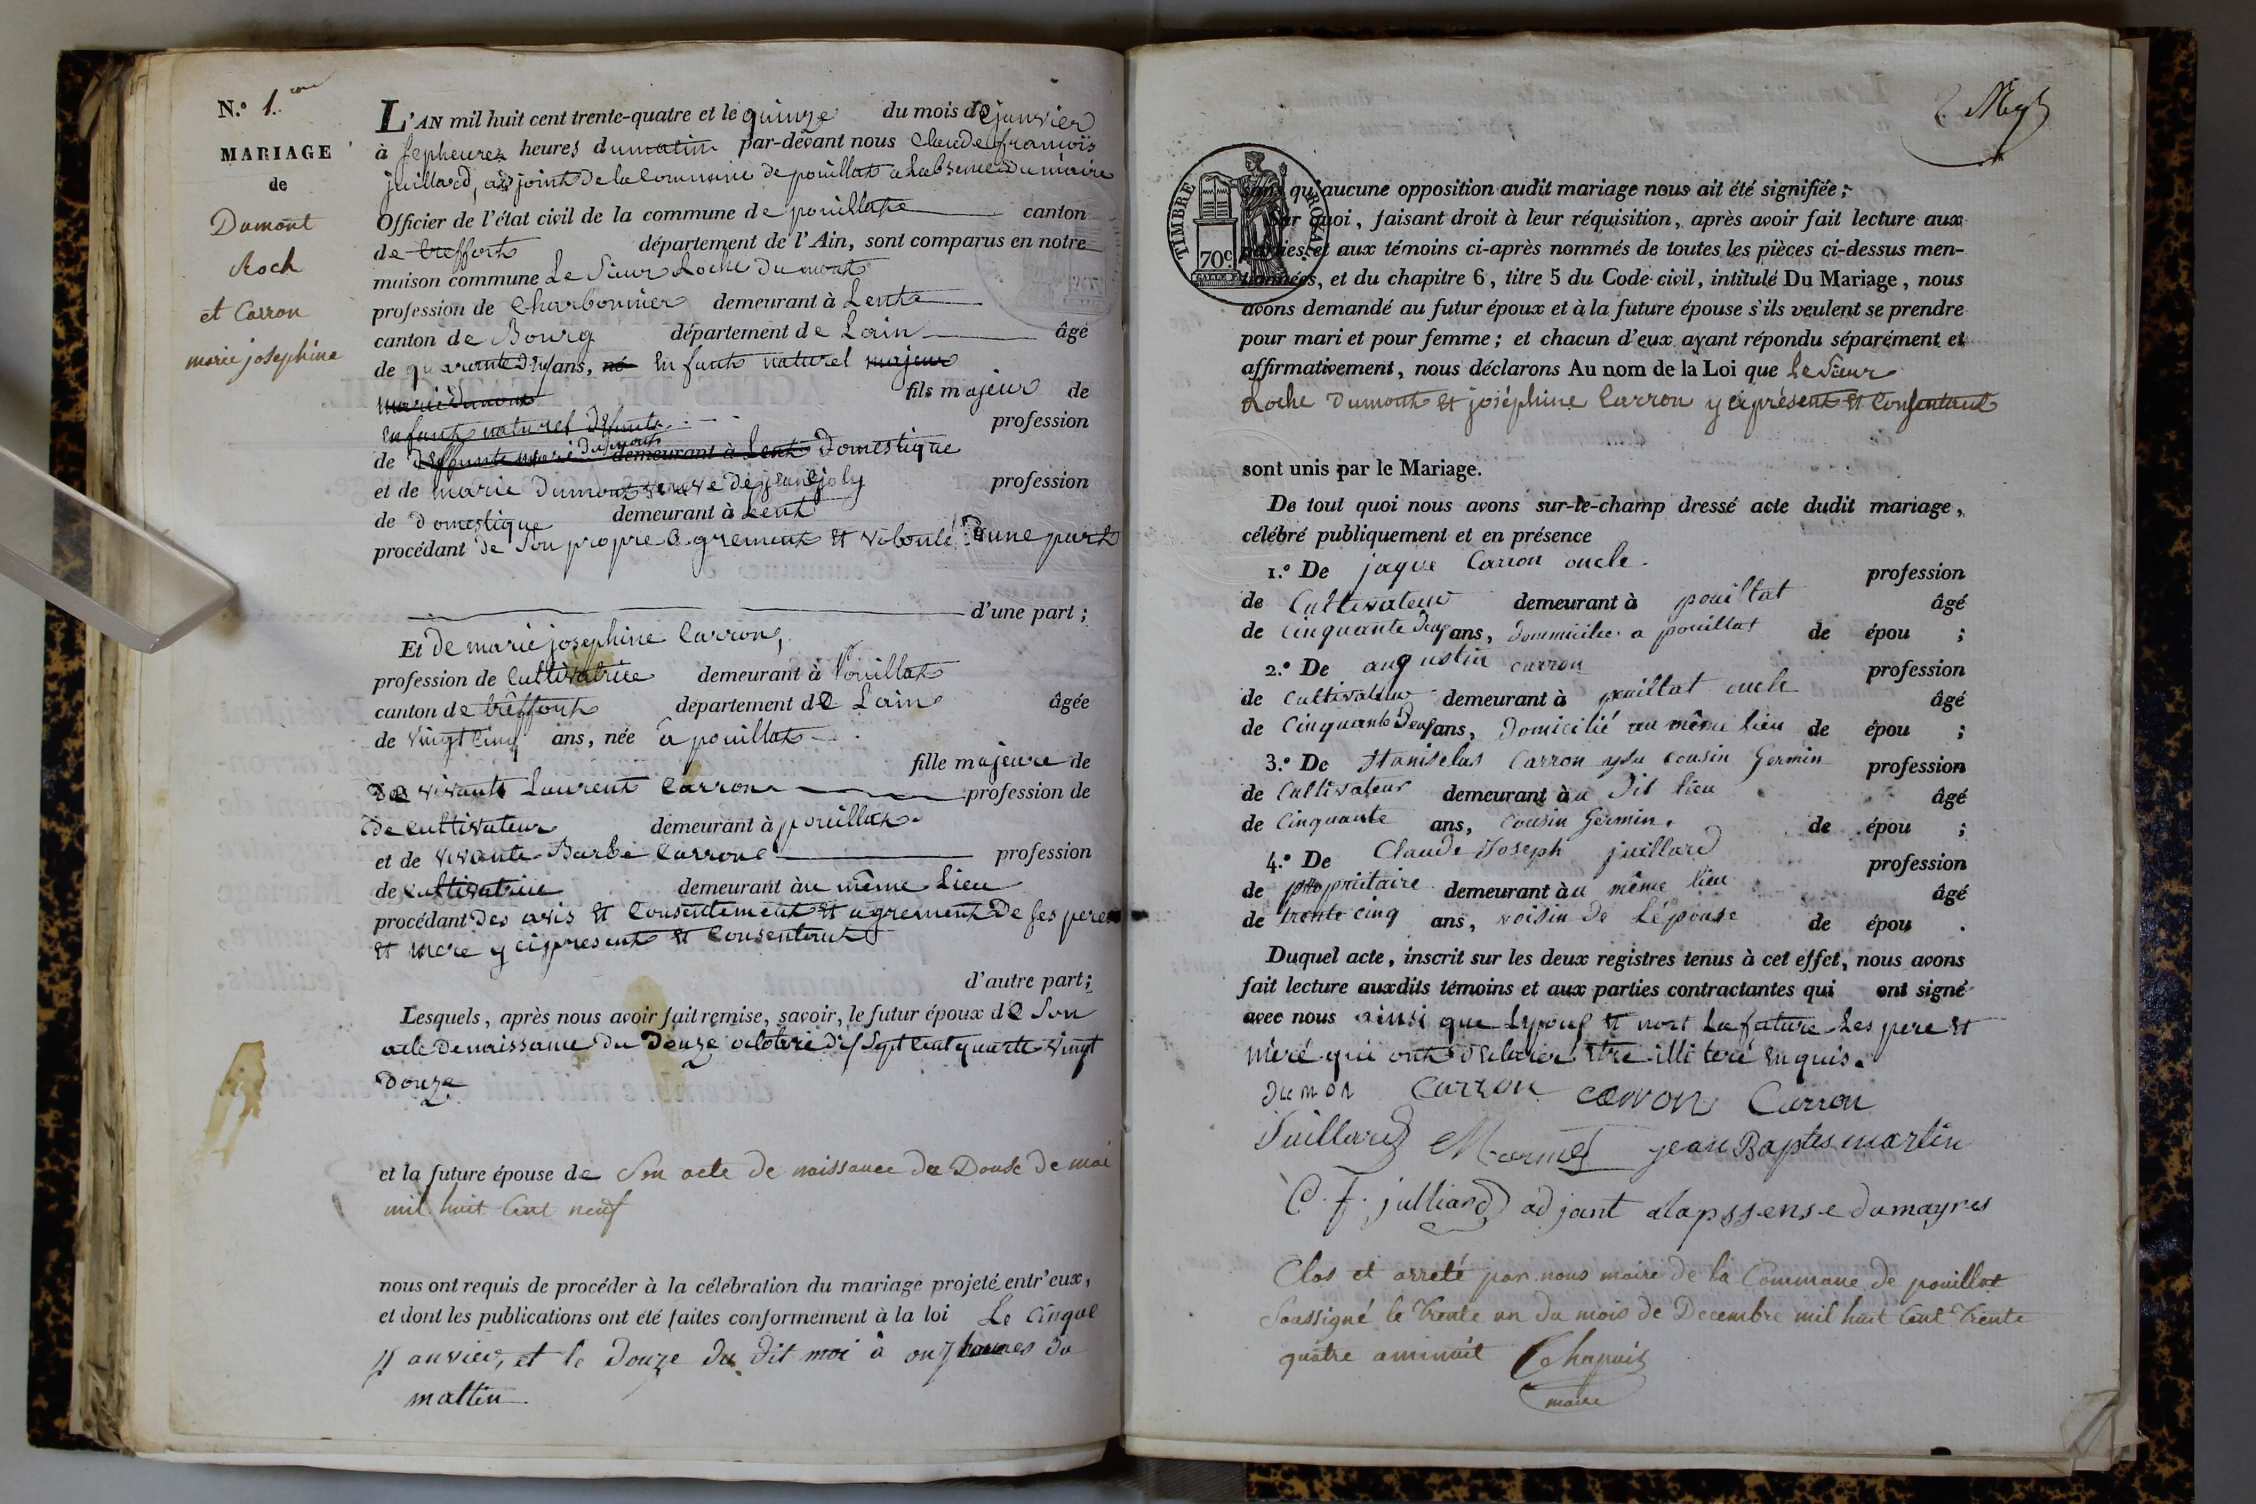 N.º 1.
MARIAGE
de
Dumont
Roch
et Carron
marie josephine
L'AN mil huit cent trente-quatre et le quinze du mois de janvier
à sepheures heures du matin par-devant nous Claude francois
juillard, adjoint de la Commune de pouillat a Labsence Du maire
Officier de l'état civil de la commune de pouillat canton
de treffort département de l'Ain, sont comparus en notre
maison commune Le Sieur Roche Dumont
profession de Charbonnier demeurant à Lent
canton de Bourg département de Lain âgé
de quarante ans, né enfant naturel majeur
marie dumont fils majeur de
enfant naturel défunte profession
de deffunte marie dumont demeurant à Lent Domestique
et de marie Dumont veuve de joly profession
de domestique demeurant à Lent
procédant de Son propre agrement et volonté D'une part
d'une part ;
Et de marie josephine Carron,
profession de Cultivatrice demeurant à Pouillat
canton de treffort département de Lain âgée
de vingt cinq ans, née a pouillat
fille majeure de
De vivant Laurent Carron profession de
de Cultivateur demeurant à pouillat
et de vivante Barbe Carrone profession
de Cultivatrice demeurant àu même Lieu
procédant Des avis et Consentement et agrement De ses pere
et mere y cipresent et Consentant
d'autre part ;
Lesquels, après nous avoir fait remise, savoir, le futur époux de Son
acte De naissance du Douze octobre Sept Cent quatre vingt
Douze
et la future épouse de Son acte de naissance du Douse de mai
mil huit Cent neuf
nous ont requis de procéder à la célébration du mariage projeté entr'eux,
et dont les publications ont été faites conformément à la loi Le Cinque
Janvier, et le Douze du dit moi à onz heures du
mattin
TIMBRE ROYAL
70c
sans qu'aucune opposition audit mariage nous ait été signifiée ;
Sur quoi, faisant droit à leur réquisition, après avoir fait lecture aux
parties et aux témoins ci-après nommés de toutes les pièces ci-dessus men-
tionnées, et du chapitre 6, titre 5 du Code civil, intitulé Du Mariage, nous
avons demandé au futur époux et à la future épouse s'ils veulent se prendre
pour mari et pour femme ; et chacun d'eux ayant répondu séparément et
affirmativement, nous déclarons Au nom de la Loi que Le Sieur
Roche Dumont et joséphine Carron y ciprésent et Consentant
sont unis par le Mariage.
De tout quoi nous avons sur-le-champ dressé acte dudit mariage,
célébré publiquement et en présence
1.º De jaque Carron oncle. profession
de Cultivateur demeurant à pouillat âgé
de Cinquante deux ans, Dommicilie a pouillat de épou ;
2.º De augustin carron profession
de Cultivateur demeurant à pouillat oncle âgé
de Cinquante Deux ans, Domicilié au même lieu de épou ;
3.º De Stanislas Carron cousin Germin profession
de Cultivateur demeurant àu Dit lieu âgé
de Cinquante ans, Cousin Germin. de épou ;
4.º De Claude Joseph juillard profession
de propriétaire demeurant àu même lieu âgé
de trente cinq ans, voisin De Lépouse de épou .
Duquel acte, inscrit sur les deux registres tenus à cet effet, nous avons
fait lecture auxdits témoins et aux parties contractantes qui ont signé
avec nous ainsi que Lepoux et nont La future Les pere et
mere qui ont Declarer etre illitere enquis.
Dumon Carron carron Carron
Juillard jean Baptis martin
C. f. julliard adjant alapssense dumayres
Clos et arreté par nous maire de la Commune de pouillat
Soussigné le trente un du mois de Decembre mil huit Cent trente
quatre aminuit Chapuis
maire